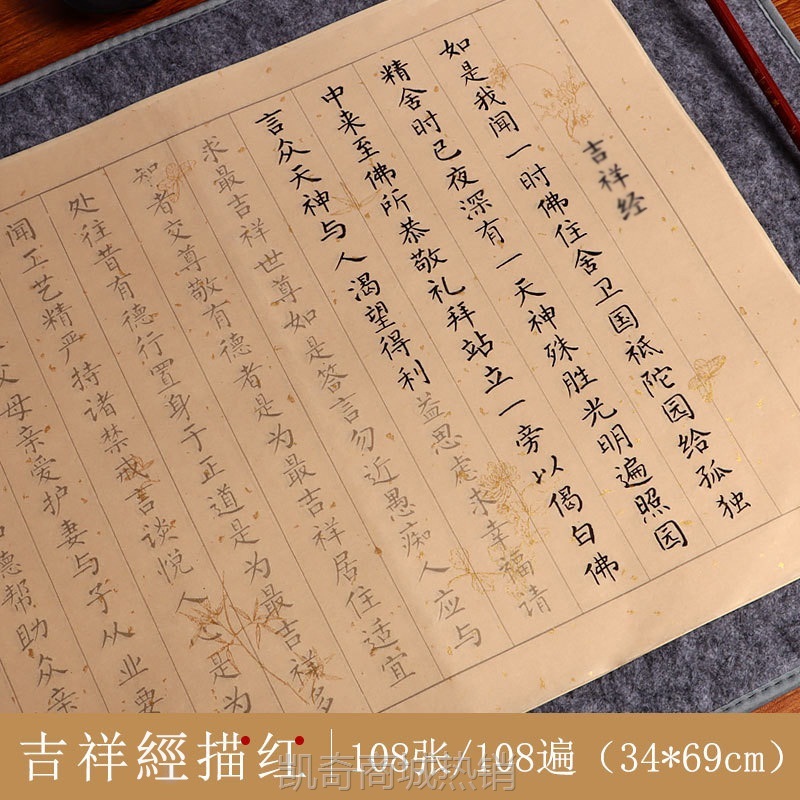 吉祥经
如是我闻一时佛住舍卫国祗陀园给孤独
精舍时已夜深有一天神殊胜光明遍照园
中来至佛所恭敬礼拜站立一旁以偈白佛
言众天神与人渴望得利益思虑求幸福请
求最吉祥世尊如是答言勿近愚痴人应与
知者交尊敬有德者是为最吉祥居住适宜
处往昔有德行置身于正道是为最吉祥多
闻工艺精严持诸禁戒言谈悦人心是为
父母亲爱护妻与子从业要
德帮助众亲
吉祥經描红 108张/108遍（34*69cm）
凯奇商城热销